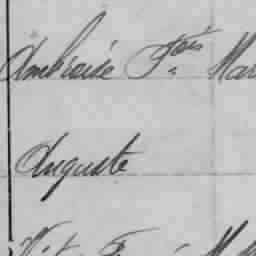 Ambroise Fçois Mar
Auguste